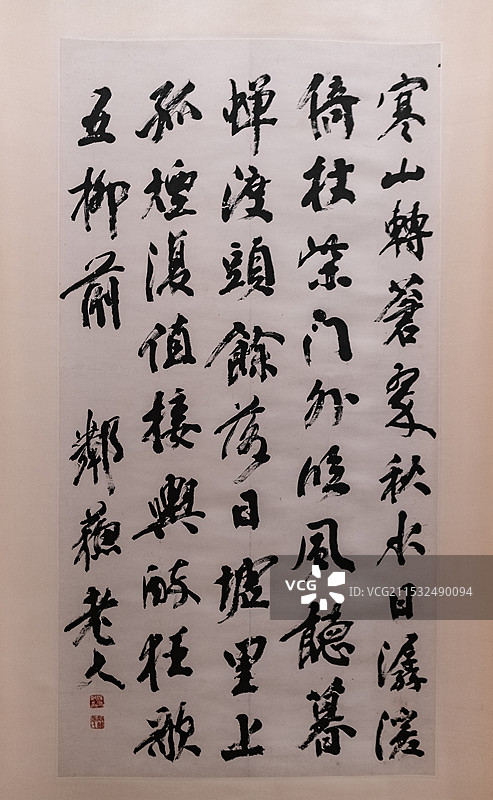 寒山轉蒼翠秋水日潺湲
倚杖柴门外臨風聽暮
蟬渡頭餘落日墟里上
孤煙復值接輿醉狂歌
五柳前 鄰蘇老人
VCG
ID:VCG211532490094